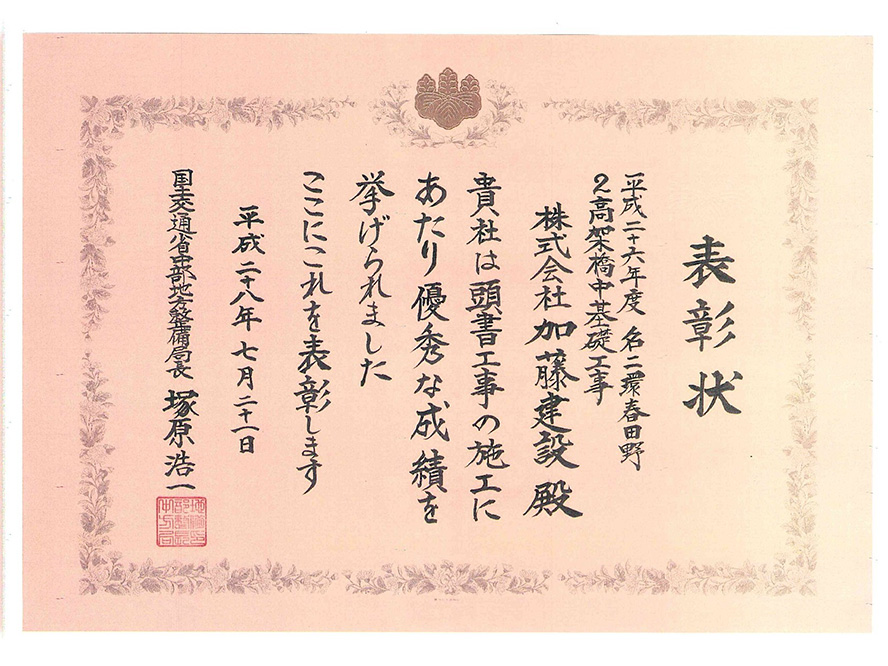 表彰状
平成二十六年度 名二環春田野
2高架橋中基礎工事
株式会社 加藤建設 殿
貴社は頭書工事の施工に
あたり優秀な成績を
挙げられました
ここにこれを表彰します
平成二十八年七月二十一日
国土交通省中部地方整備局長 塚原浩一